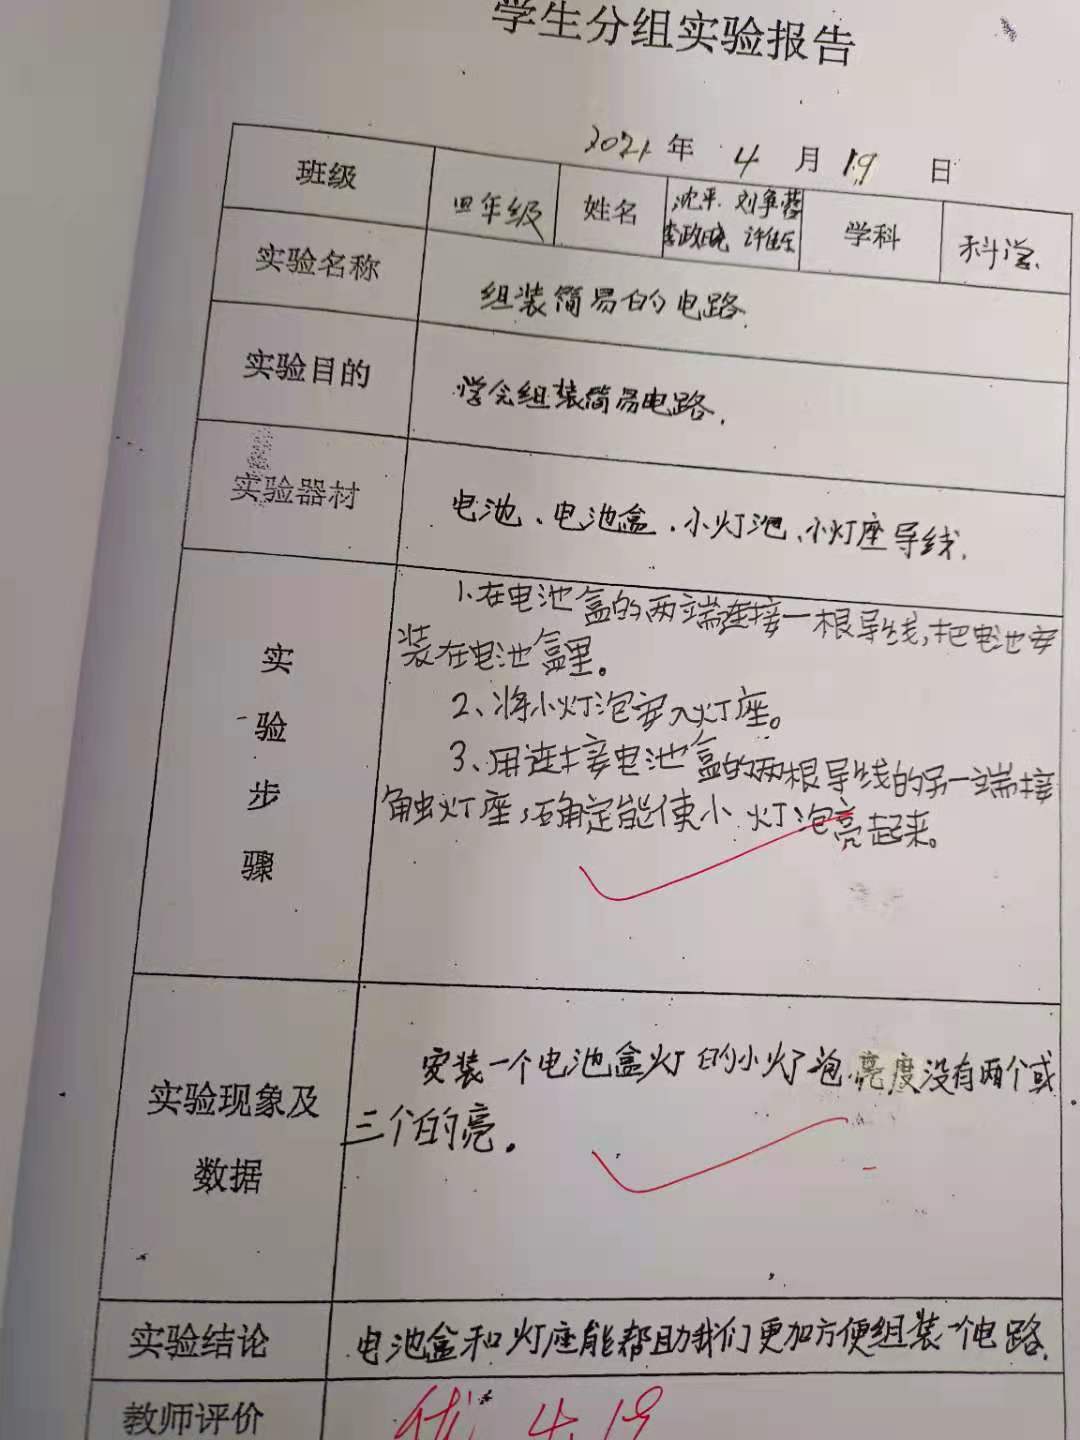 学生分组实验报告
2021年 4 月 19 日
班级 四年级 姓名 沈平 刘争蓉 学科 科学
李政晓 许佳乐
实验名称 组装简易的电路.
实验目的 学会组装简易电路.
实验器材 电池、电池盒、小灯泡、小灯座导线.
实验步骤
1.在电池盒的两端连接一根导线,把电池安
装在电池盒里。
2、将小灯泡安入灯座。
3、用连接电池盒的两根导线的另一端接
触灯座,确定能使小灯泡亮起来。
实验现象及数据
安装一个电池盒灯的小灯泡亮度没有两个或
三个的亮.
实验结论 电池盒和灯座能帮助我们更加方便组装一个电路.
教师评价 优 4.19